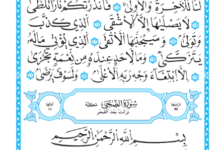 لَنَا لَلْآخِرَةَ وَالْأُولَىٰ فَأَنذَرْتُكُمْ نَارًا تَلَظَّىٰ
لَا يَصْلَاهَا إِلَّا الْأَشْقَى الَّذِي كَذَّبَ
وَتَوَلَّىٰ وَسَيُجَنَّبُهَا الْأَتْقَى الَّذِي يُؤْتِي مَالَهُ
يَتَزَكَّىٰ وَمَا لِأَحَدٍ عِندَهُ مِن نِّعْمَةٍ تُجْزَىٰ
إِلَّا ابْتِغَاءَ وَجْهِ رَبِّهِ الْأَعْلَىٰ وَلَسَوْفَ يَرْضَىٰ
سُورَةُ الضُّحَىٰ مكية
نزلت بعد الفجر
بِسْمِ اللَّهِ الرَّحْمَٰنِ الرَّحِيمِ